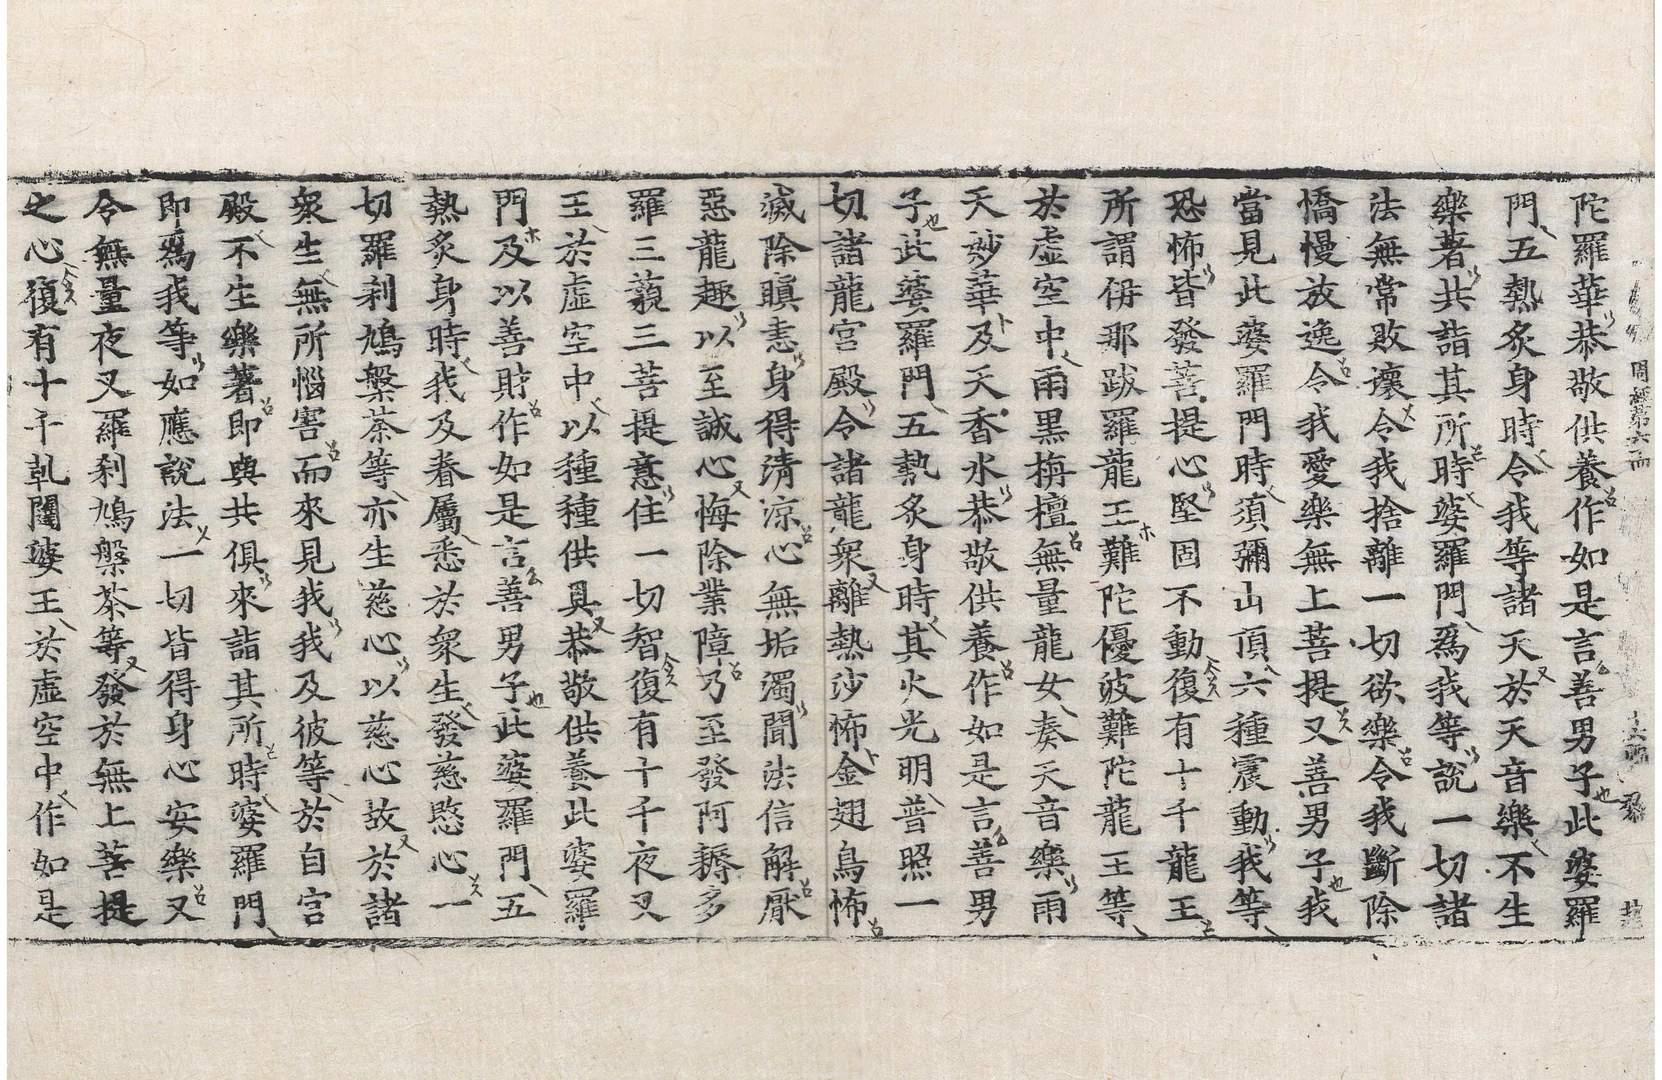 周經第六 十六
陀羅華恭敬供養作如是言善男子此婆羅
門五熱炙身時令我等諸天於天音樂不生
樂著共詣其所時婆羅門爲我等說一切諸
法無常敗壞令我捨離一切欲樂令我斷除
憍慢放逸令我愛樂無上菩提又善男子我
當見此婆羅門時須彌山頂六種震動我等
恐怖皆發菩提心堅固不動復有十千龍王
所謂伊那跋羅龍王難陀優波難陀龍王等
於虛空中雨黑栴檀無量龍女奏天音樂雨
天妙華及天香水恭敬供養作如是言善男
子此婆羅門五熱炙身時其火光明普照一
切諸龍宮殿令諸龍衆離熱沙怖金翅鳥怖
滅除瞋恚身得清涼心無垢濁聞法信解厭
惡龍趣以至誠心悔除業障乃至發阿耨多
羅三藐三菩提意住一切智復有十千夜叉
王於虛空中以種種供具恭敬供養此婆羅
門及以善財作如是言善男子此婆羅門五
熱炙身時我及眷屬悉於衆生發慈愍心一
切羅刹鳩槃荼等亦生慈心以慈心故於諸
衆生無所惱害而來見我我及彼等於自宮
殿不生樂著即與共俱來詣其所時婆羅門
即爲我等如應說法一切皆得身心安樂又
令無量夜叉羅刹鳩槃荼等發於無上菩提
之心復有十千乹闥婆王於虛空中作如是